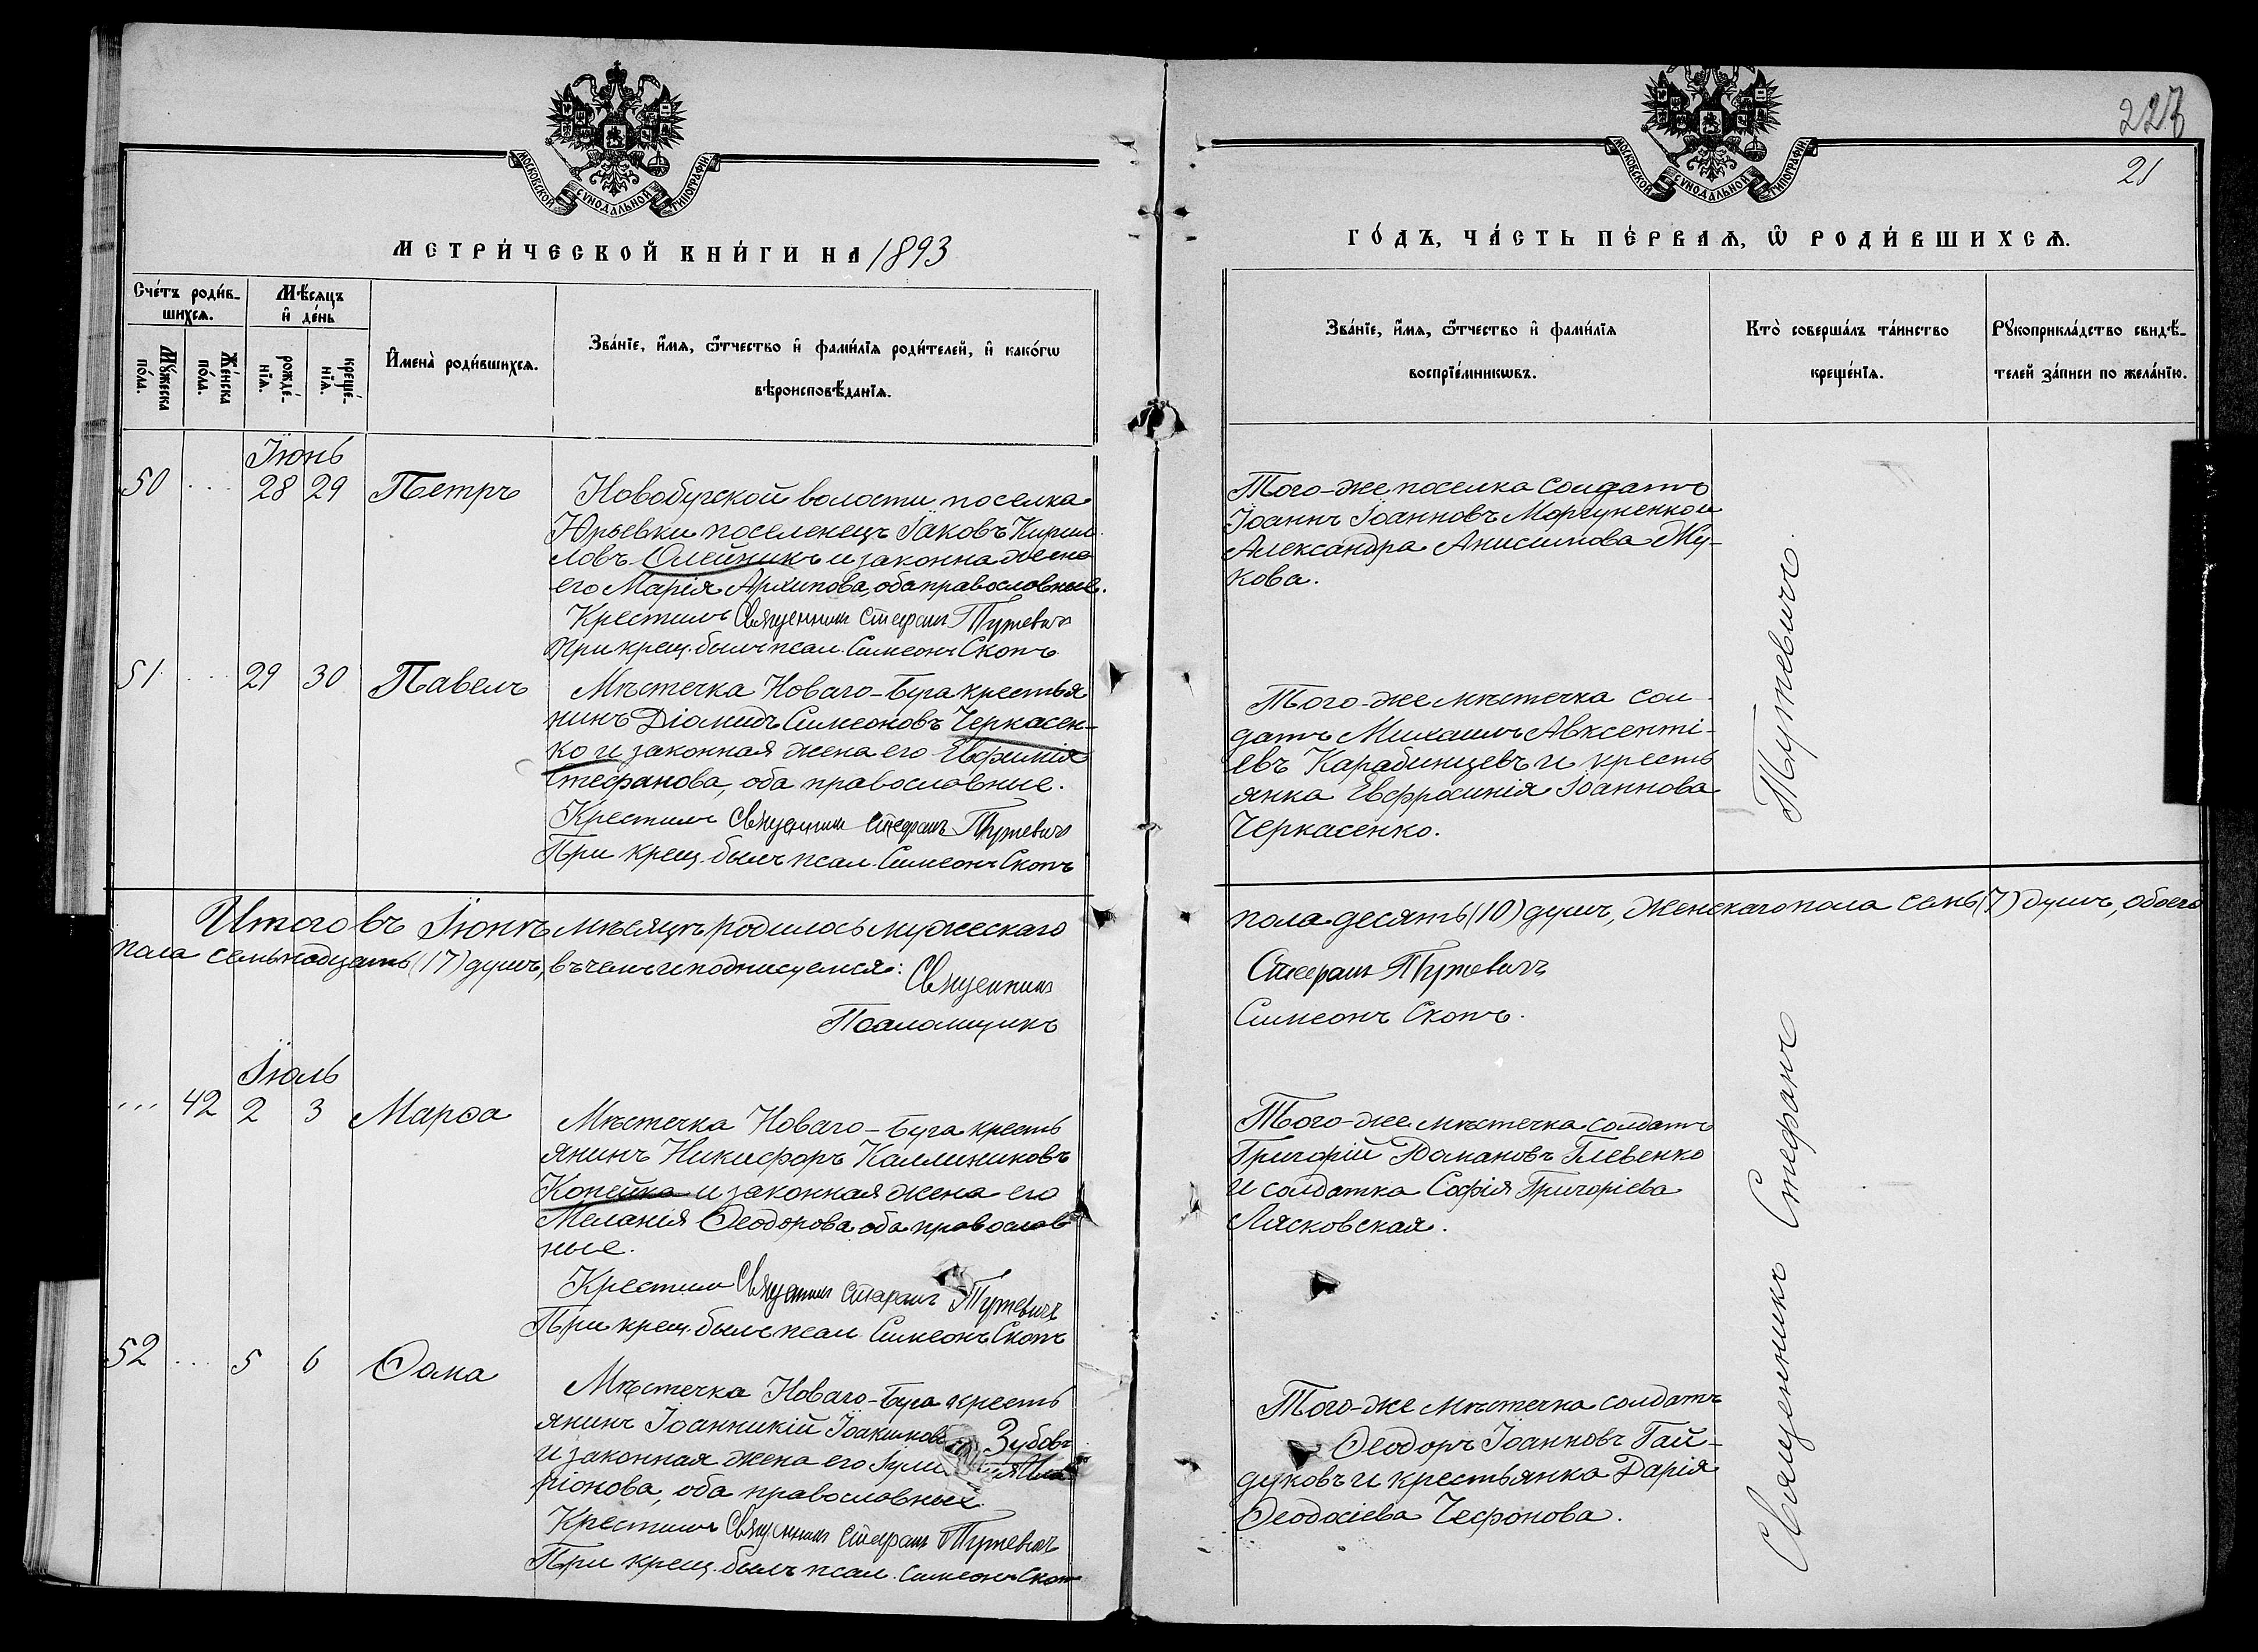 МОСКОВСКОЙ СѴНОДАЛЬНОЙ ТИПОГРАФІИ
МЕТРИ́ЧЕСКОЙ КНИ́ГИ НА 1893
Сче́тъ роди́в-
шихсѧ.
Мѣсяцъ
и де́нь
Мꙋ́жеска
по́ла.
Же́нска
по́ла.
рожде́-
нїѧ.
креще́-
нїѧ.
Имена̀ роди́вшихсѧ.
Зва́нїе, и́мѧ, ѻ҆́тчество и фами́лїѧ роди́телей, и како́гѡ
вѣроисповѣ́данїѧ.
Іюнь
50 ... 28 29 Петръ
Новобугской волости поселка
Юрьевки поселенецъ Іаковъ Кирил-
ловъ Олейникъ и законна жена
его Марія Архипова, оба православные.
Крестилъ Священникъ Стефанъ Путевичъ
При крещ. былъ псал. Симеонъ Скопъ
51 ... 29 30 Павелъ
Мѣстечка Новаго-Буга крестья
нинъ Діомидъ Симеоновъ Черкасен-
ко и законная жена его Евфимія
Стефанова, оба православные.
Крестилъ Священникъ Стефанъ Путевичъ
При крещ. былъ псал. Симеонъ Скопъ
Итого въ Іюнѣ мѣсяцѣ родилось мужескаго
пола семьнадцать (17) душъ, въ чемъ и подписуемся: Священникъ
Псаломщикъ
Іюль
... 42 2 3 Марѳа
Мѣстечка Новаго-Буга кресть
янинъ Никифоръ Каллиниковъ
Копейка и законная жена его
Меланія Ѳеодорова оба православ
ные.
Крестилъ Священникъ Стефанъ Путевичъ
При крещ. былъ псал. Симеонъ Скопъ
52 ... 5 6 Ѳома
Мѣстечка Новаго-Буга кресть
янинъ Іоанникій Іоакимовъ Зубовъ
и законная жена его
ріонова, оба православные.
Крестилъ Священникъ Стефанъ Путевичъ
При крещ. былъ псал. Симеонъ Скопъ
21
МОСКОВСКОЙ СѴНОДАЛЬНОЙ ТИПОГРАФІИ
ГО́ДЪ, ЧА́СТЬ ПЕ́РВАѦ, Ѡ҆ РОДИ́ВШИХСѦ.
Зва́нїе, и́мѧ, ѻ҆́тчество и фами́лїѧ
воспрїе́мникѡвъ.
Кто̀ соверша́лъ та́инство
креще́нїѧ.
Рꙋкоприкла́дство свидѣ́-
телей за́писи по жела́нїю.
Того-же поселка солдатъ
Іоаннъ Іоанновъ Моргуненко и
Александра Анисимова Жу-
кова.
Того-же мѣстечка сол-
датъ Михаилъ Авксенті-
евъ Карабинцевъ и кресть
янка Евфросинія Іоаннова
Черкасенко.
пола десять (10) душъ, женскаго пола семь (7) душъ, обоего
Стефанъ Путевичъ
Симеонъ Скопъ.
Того-же мѣстечка солдатъ
Григорій Романовъ Глевенко
и солдатка Софія Григоріева
Лясковская.
Того-же мѣстечка солдатъ
Ѳеодоръ Іоанновъ Гай-
дуковъ и крестьянка Дарія
Ѳеодосіева Чефонова.
Священникъ Стефанъ Путевичъ.